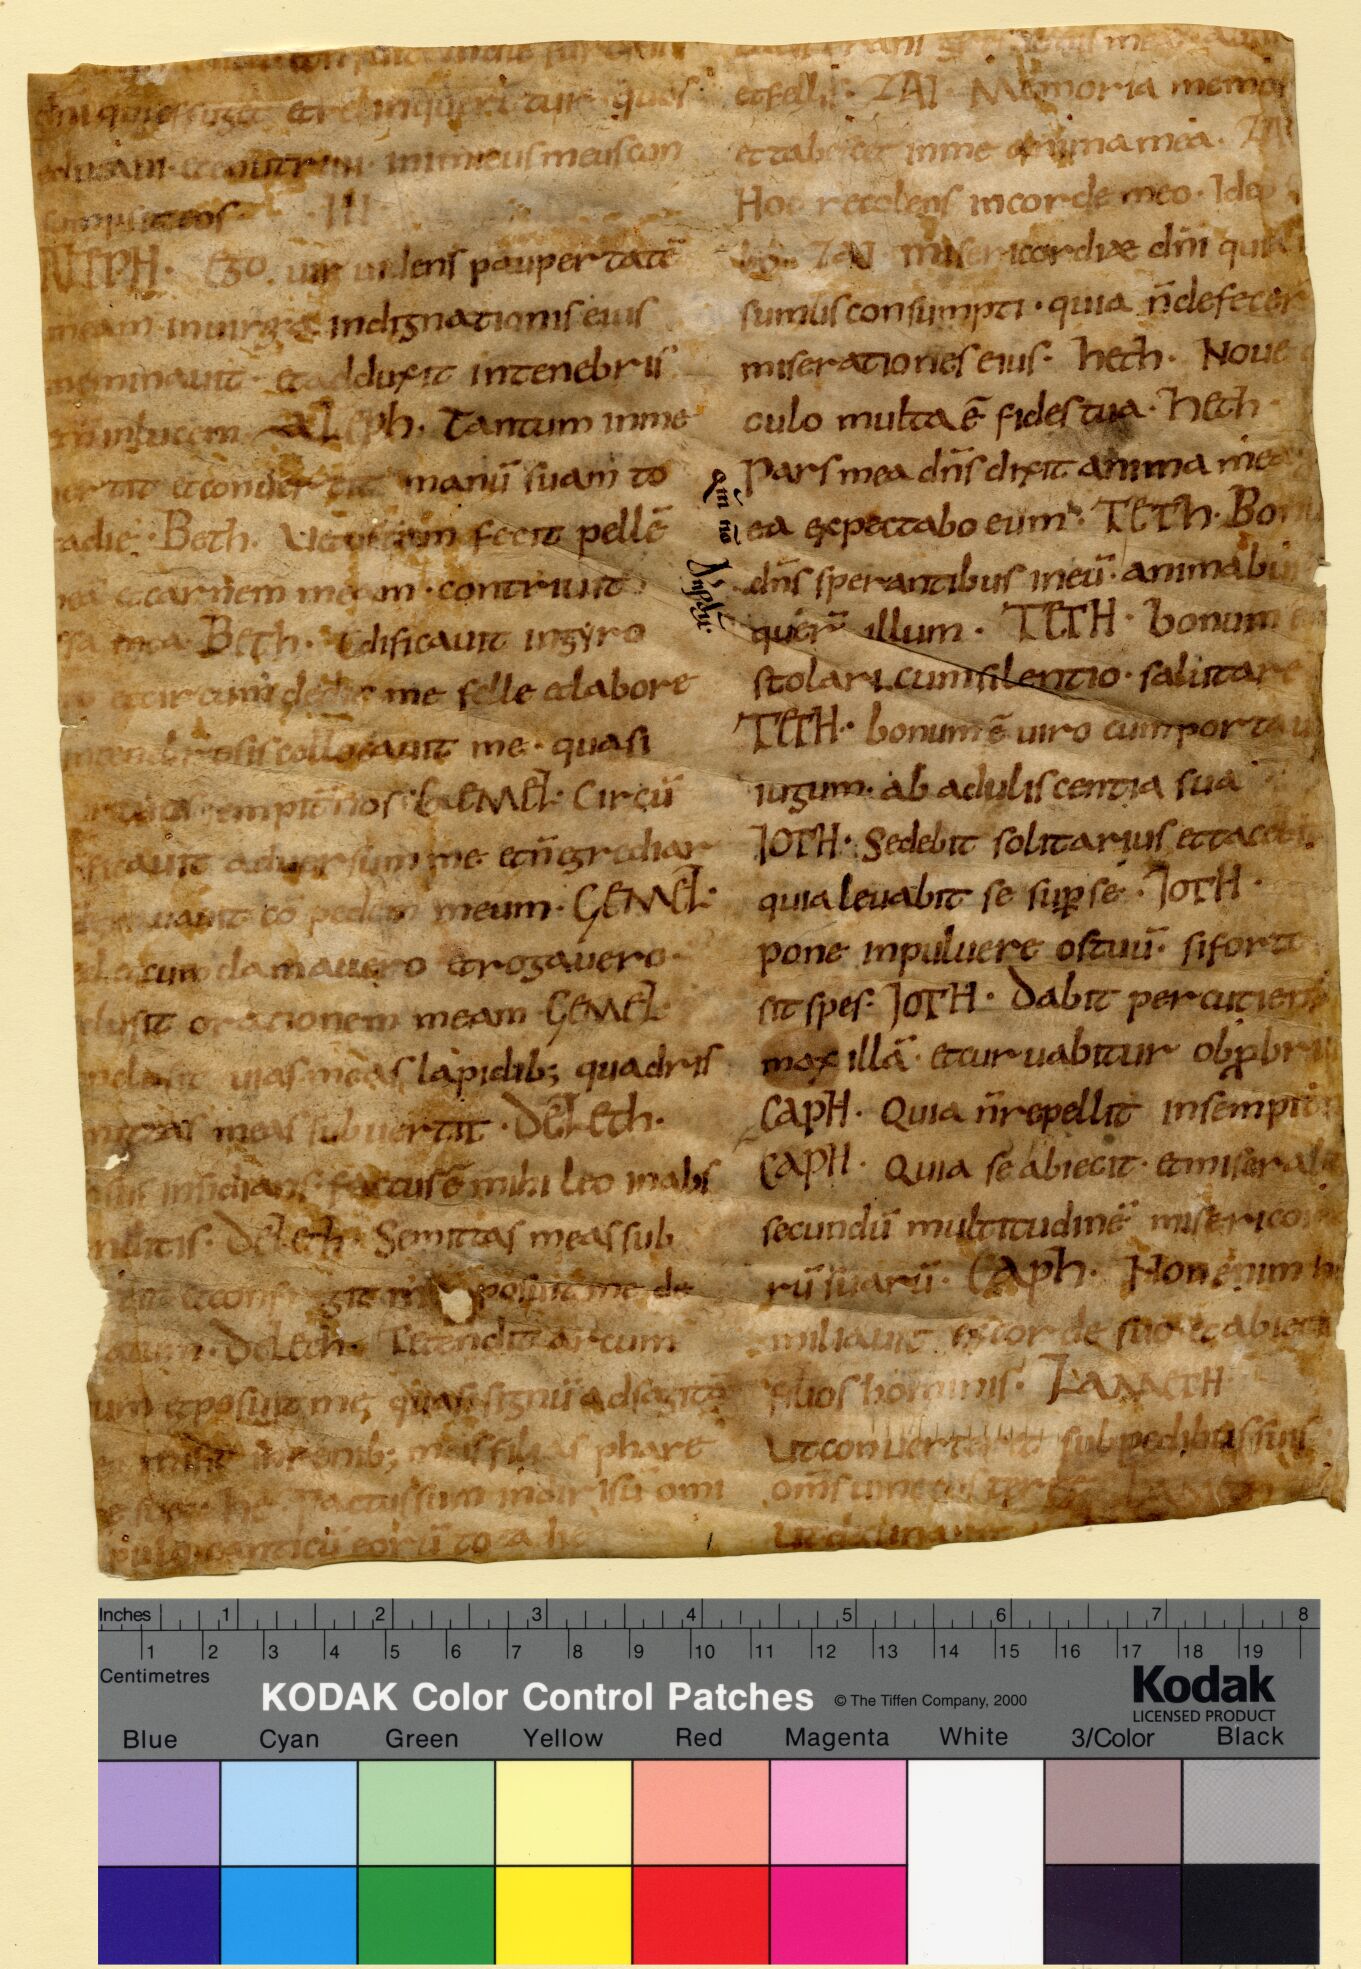 dñi qui effugeret et relinqueretur · quos
educavi · et enutrivi · inimicus meus con
sumpsit eos · III ·
ALEPH · Ego vir videns paupertatē
meam in virga indignationis eius
me minavit · et adduxit in tenebris
et ñ in lucem · ALEph · Tantum in me
vertit et convertit manū suam to
ta die · Beth · Vetustam fecit pellē
meā et carnem meam · contrivit
ossa mea · Beth · Edificavit in gyro
meo et circumdedit me felle et labore
in tenebrosis collocavit me · quasi
mortuos sempiternos · GEMEL · Circū
edificavit adversum me et ñ egrediar
aggravavit cōpedem meum · GEMEL ·
Sed et cum clamavero et rogavero ·
exclusit orationem meam GEMEL
Conclusit vias meas lapidib; quadris
semitas meas subvertit · DELEth ·
Ursus insidians factus ē mihi leo in abs
conditis · DELEth · Semitas meas sub
vertit et confregit me posuit me de
solatam · DELEth · Tetendit arcum
suum et posuit me quasi signū ad sagittā
he misit in renib; meis filias phare
tre sue · he · Factus sum in dirisū omi
populo · canticū eorū tota he
et felli · ZAI · Memoria memor
et tabescet in me anima mea · ZAI
Hoc recolens in corde meo · Ideo s
bo · ZAI · misericordiæ dñi quia
sumus consumpti · quia ñ defecer
miserationes eius · heth · Nove
culo multa ē fides tua · heth ·
Pars mea dñs dixit anima mea
ea expectabo eum · TETh · Bonu
dñs sperantibus in eū · animabus
querē illum · TETH · bonum e
stolari cum silentio · salutare
TETH · bonum ē viro cum portav
iugum · ab aduliscentia sua
IOTH · Sedebit solitarius et tacebit
quia levabit se sup se · IOTH ·
pone in pulvere os tuū · si forte
sit spes · IOTH · Dabit percutienti
maxillā · et curvabitur obprobri
CAPH · Quia ñ repellit in sempit
CAPH · Quia se abiecit · et miseral
secundū multitudinē misericor
rū suarū · CAph · Non enim h
miliavit ex corde suo · et abiecit
filios hominis · LAMETH
Ut converteret sub pedibus suis ·
oms vinctos terre · LAMETH
Ut declinaret
Inches 1 2 3 4 5 6 7 8
1 2 3 4 5 6 7 8 9 10 11 12 13 14 15 16 17 18 19
Centimetres
KODAK Color Control Patches © The Tiffen Company, 2000
Kodak
LICENSED PRODUCT
Blue Cyan Green Yellow Red Magenta White 3/Color Black